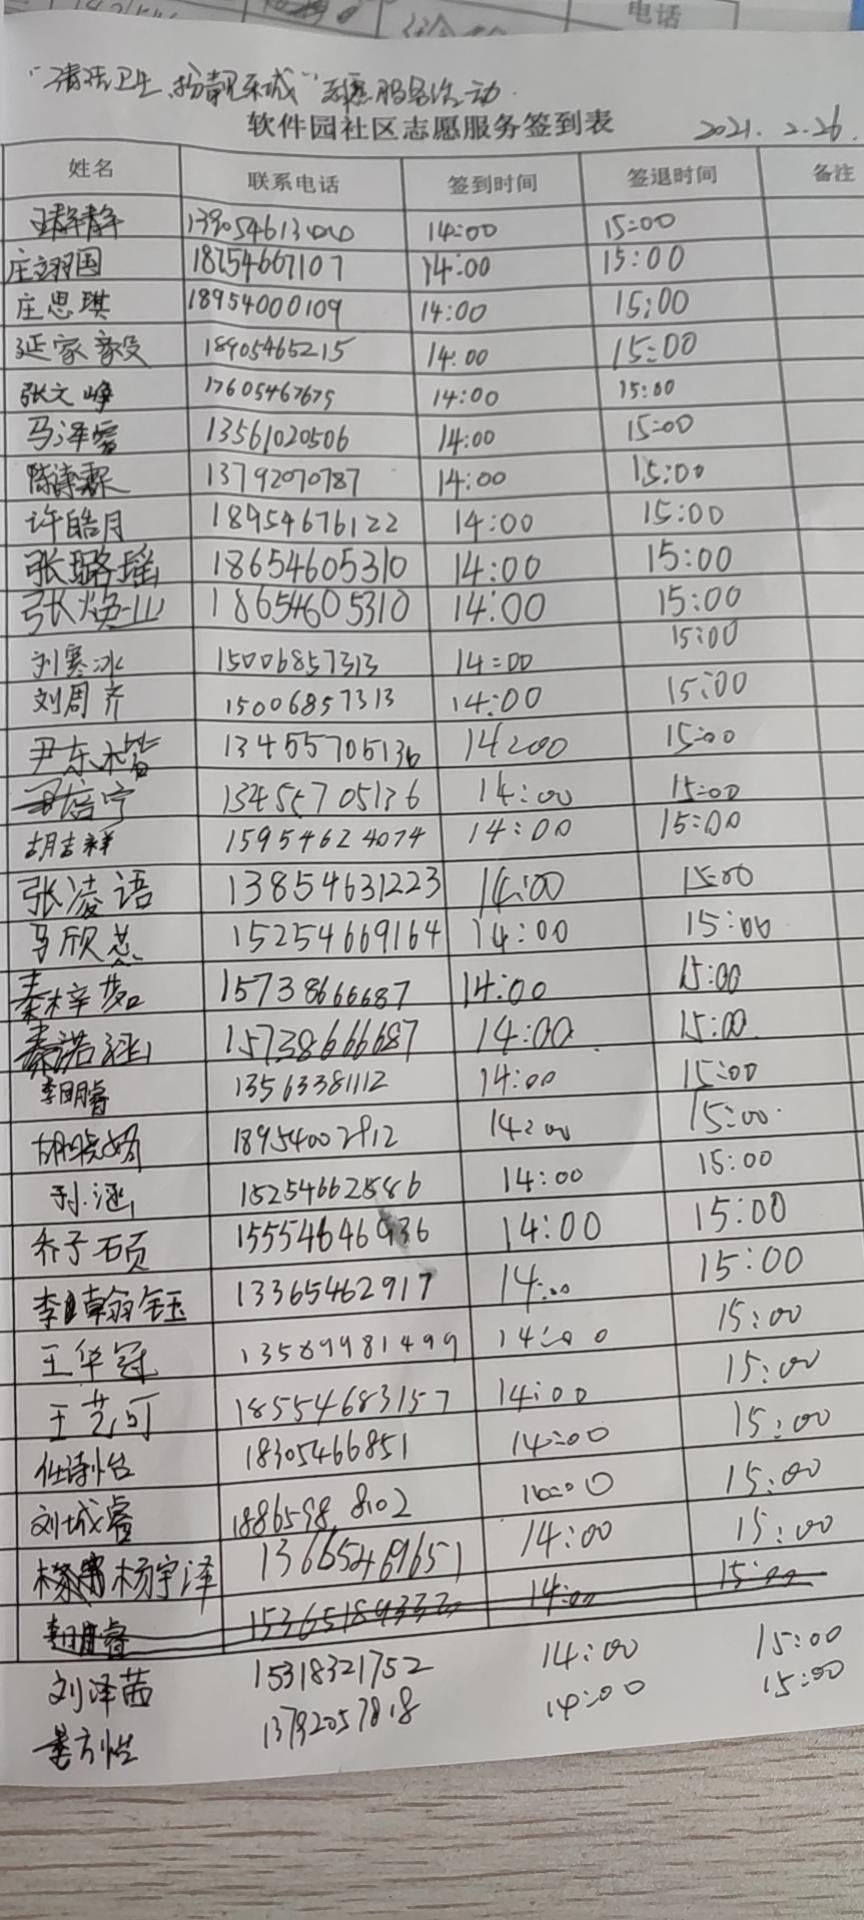 电话
"清洁卫生,扮靓东城"志愿服务活动.
软件园社区志愿服务签到表 2021.2.26.
姓名 联系电话 签到时间 签退时间 备注
王静静 14:00 15:00
庄翊国 18754667107 14:00 15:00
庄思琪 18954000109 14:00 15:00
延家毅 18905465215 14:00 15:00
张文峥 17605467675 14:00 15:00
马泽睿 13561020506 14:00 15:00
陈谏霖 13792070787 14:00 15:00
许皓月 18954676122 14:00 15:00
张璐瑶 18654605310 14:00 15:00
张焕山 18654605310 14:00 15:00
刘寒冰 15006857313 14:00 15:00
刘周齐 15006857313 14:00 15:00
尹东楷 13455705136 14:00 15:00
13455705136 14:00 15:00
胡吉祥 15954624074 14:00 15:00
张凌语 13854631223 14:00 15:00
马欣慈 15254669164 14:00 15:00
秦梓茹 15738666687 14:00 15:00
秦诺涵 15738666687 14:00 15:00
李明睿 13563381112 14:00 15:00
胡晓娇 18954002912 14:00 15:00
孙涵 15254662586 14:00 15:00
乔子硕 15554646936 14:00 15:00
李翰钰 13365462917 14:00 15:00
王华冠 13589981499 14:00 15:00
王艺可 18554683157 14:00 15:00
任诗怡 18305466851 14:00 15:00
刘城睿 1886598 8102 15:00
杨宇泽 13665469651 14:00 15:00
14:00 15:00
刘泽茜 15318321752 14:00 15:00
13792057818 14:00 15:00